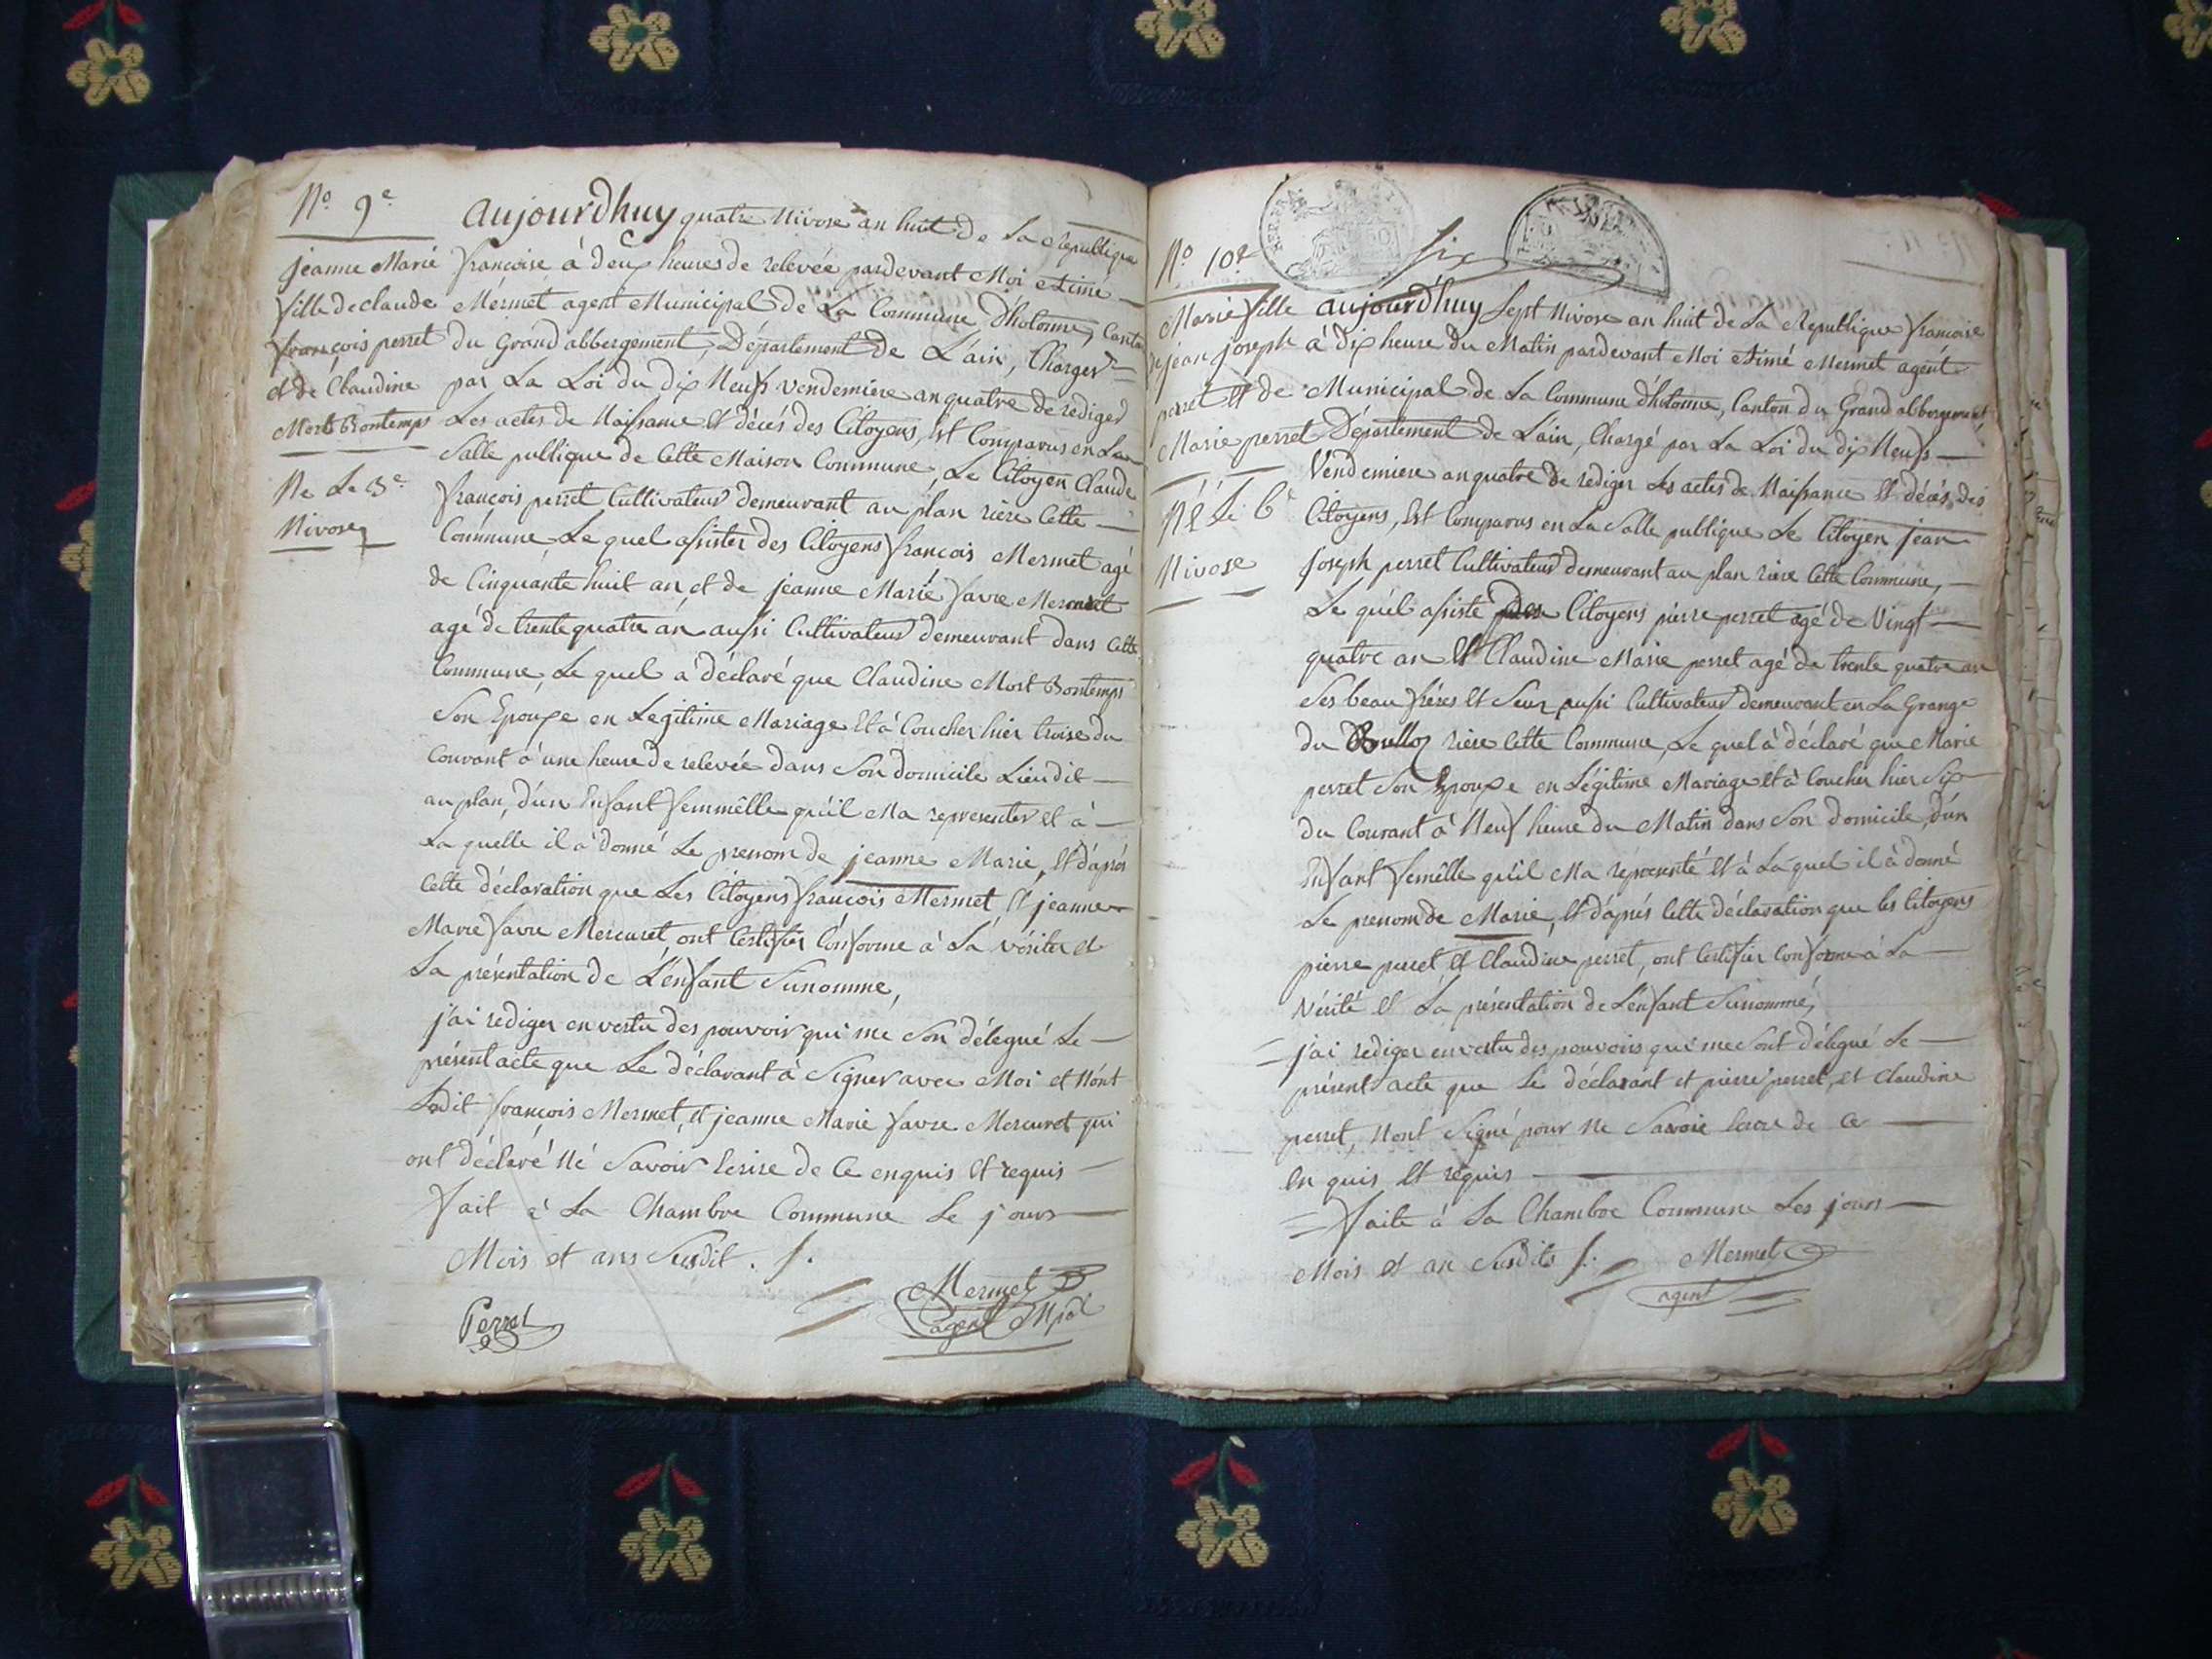 No. 9e
jeanne Marie
fille de claude
françois perret
et de Claudine
Mort Bontemps
Ne Le 3e
Nivose
aujourdhuy quatre Nivose an huit de La Republique
francoise à deux heures de relevée pardevant Moi Aimé
Mérmet agent Municipal de La Commune d'hotonne, Canton
du Grand abbergement, Département de L'ain, Charger
par La Loi du dix Neuf Vendemiere an quatre de rediger
Les actes de Naissance et décés des Citoyens, est Comparus en La
Salle publique de Cette Maison Commune, Le Citoyen Claude
françois perret Cultivateur demeurant au plan riere Cette
Commune, Le quel assister des Citoyens françois Mermet agé
de Cinquante huit an, et de jeanne Marie favre Mercuret
agé de trente quatre an aussi Cultivateur demeurant dans Cette
Commune, Le quel a déclaré que Claudine Mort Bontemps
Son Epouse en Legitime Mariage et à Coucher hier troise du
Courant à une heure de relevée dans Son domicile Lieudit
au plan, d'un Enfant femmêlle qu'il Ma representer et à
La quelle il à donné Le prenom de jeanne Marie, et d'aprés
Cette déclaration que Les Citoyens francois Mermet et jeanne
Marie favre Mercuret, ont Certifier Conforme à La vériter et
La présentation de L'enfant Sunomme,
j'ai rediger en vertu des pouvoir qui me Son délegué Le
présent acte que Le déclarant à Signer avec Moi et N'ont
Ledit françois Mermet, et jeanne Marie favre Mercuret qui
ont déclaré Né Savoir Ecrire de Ce enquis et requis
fait à La Chambre Commune Le jours
Mois et ans Susdit .
Perret
Mermet
agent Mpal
No. 10e
six
Marie fille
de jean joseph
perret et de
Marie perret
Né Le 6e
Nivose
aujourd'huy Sept Nivose an huit de La Republique francoise
à dix heure du Matin pardevant Moi Aimé Mermet agent
Municipal de La Commune d'hotonne, Canton du Grand abbergement,
Département de L'ain, Chargé par La Loi du dix Neuf
Vendemiere an quatre de rediger Les actes de Naissance et décés, des
Citoyens, est Comparus en La Salle publique Le Citoyen jean
joseph perret Cultivateur demeurant au plan riere Cette Commune,
Le quel assiste des Citoyens pierre perret agé de Vingt
quatre an et Claudine Marie perret agé de trente quatre an
Ses beau fréres et Seur aussi Cultivateur demeurant en La Grange
du riere Cette Commune, Le quel à déclaré que Marie
perret Son Epouse en Légitime Mariage et à Coucher hier Six
du Courant à Neuf heure du Matin dans Son domicile d'un
Enfant femêlle qu'il Ma représenté et à La quel il à donné
Le prenom de Marie, et d'aprés Cette déclaration que les Citoyens
pierre perret, et Claudine perret, ont Certifier Conforme à La
Vérité et La présentation de L'enfant Sunommé,
j'ai rediger en vertu des pouvoirs qui me Sont délegué Le
présent acte que Le déclarant et pierre perret, et Claudine
perret, Nont Signé pour Ne Savoir Ecrire de Ce
En quis et requis
faite à La Chambre Commune Les jours
Mois et an Susdits
Mermet
agent